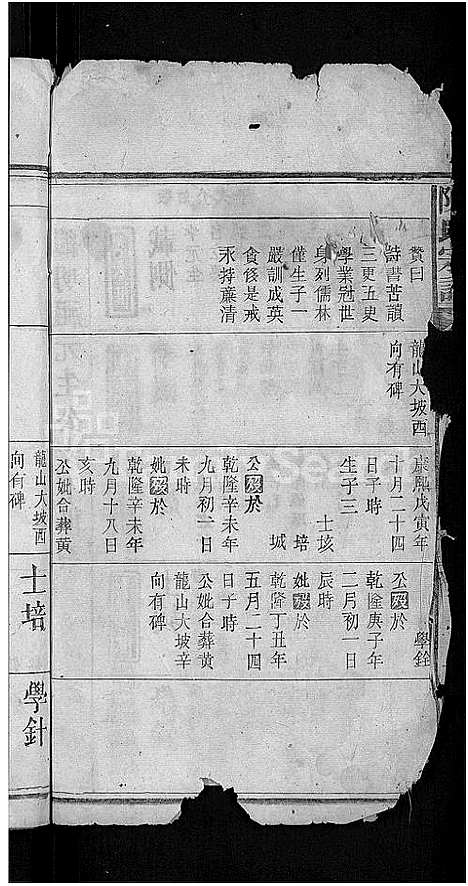 贊曰
詩書苦讀
三更五史
學業冠世
身列儒林
僅生子一
嚴訓成英
食餒是戒
永持蘪清
龍山大坡西
向有碑
康熙戊寅年
十月二十四
日子時
生子三
士垓
培
城
公歿於
乾隆辛未年
九月初一日
未時
妣歿於
乾隆辛未年
九月十八日
亥時
公妣合葬黃
學銓
公歿於
乾隆庚子年
二月初一日
辰時
妣歿於
乾隆丁丑年
五月二十四
日子時
公妣合葬黃
龍山大坡辛
向有碑
龍山大坡西
向有碑
士培
學針